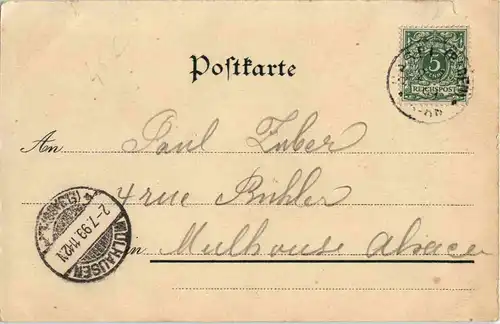 5
REICHSPOST
Postkarte
An Paul Zuber
4 rue Buhler
in Mulhouse Alsace
MÜLHAUSEN
2-7.99.11-12N